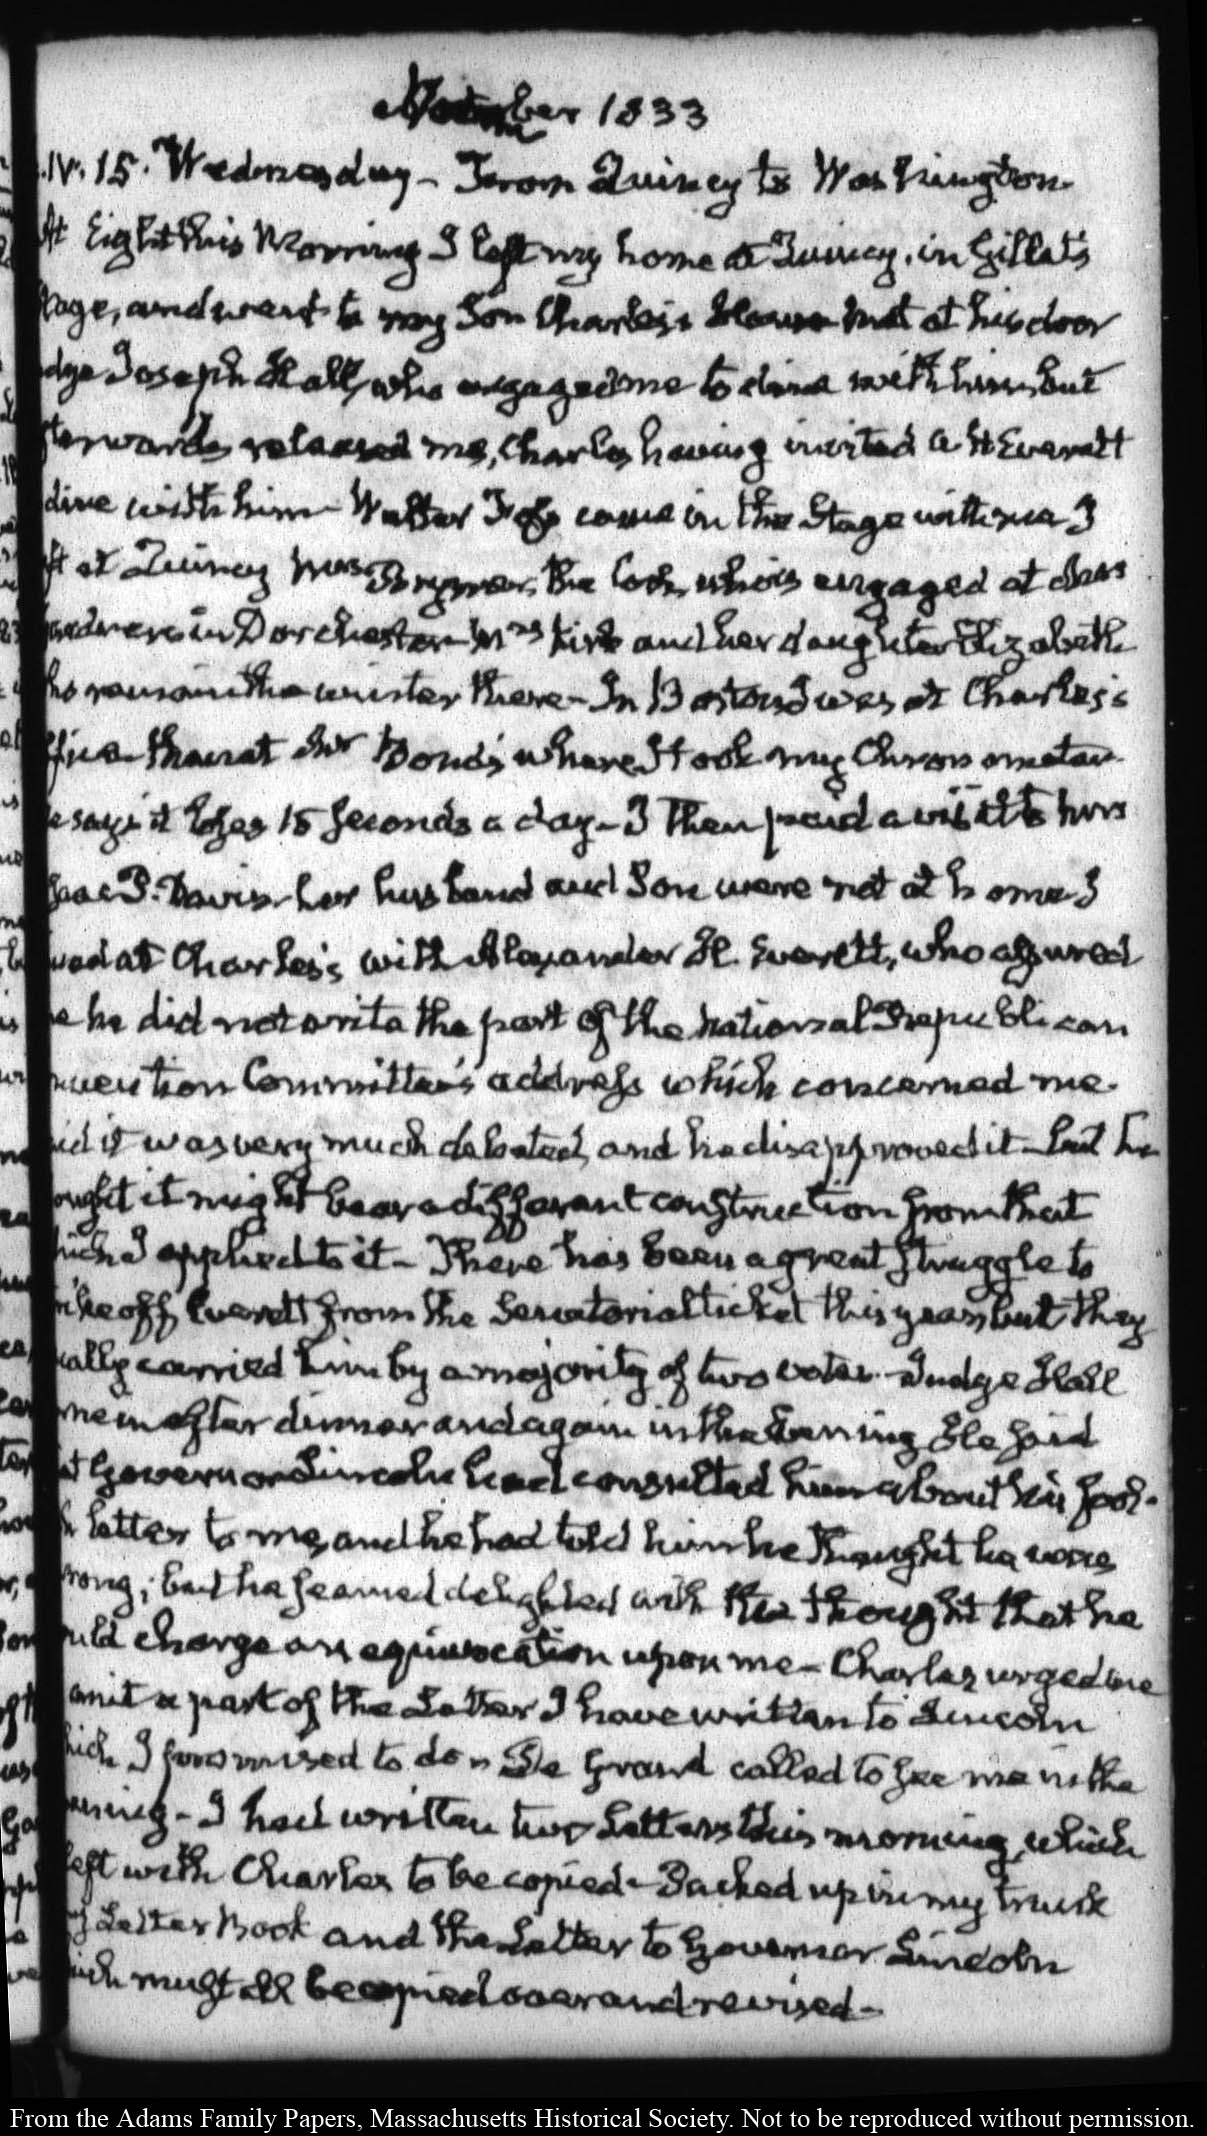 November 1833
IV. 15. Wednesday – From Quincy to Washington.
At Eight this Morning I left my home at Quincy, in Gillet's
tage, and went to my Son Charles's House met at his door
dge Joseph Hall, who engaged me to dine with him, but
terwards released me, Charles having invited A H Everett
dine with him – Walter come in the Stage with me I
ft at Quincy Mrs the Cook, who is engaged at
in Dorchester – Mrs Kirk and her daughter Elizabeth
ho remain the winter there – In Boston I was at Charles's
ffice – then at Mr Bond's where I took my Chronometer
e says it loses 15 Seconds a day – I then paid a visit to Mrs
saac P. Davis – her husband and Son were not at home – I
ined at Charles's with Alexander H. Everett, who assured
e he did not write the part of the National Republican
nvention Committee's address which concerned me.
aid it was very much debated, and he disapproved it – but he
ought it might bear a different construction from that
hich I applied to it – There has been a great struggle to
trike off Everett from the Senatorial ticket this year, but they
nally carried him by a majority of two votes – Judge Hall
me in after dinner and again in the Evening He said
at Governor Lincoln had consulted him about his fool-
h letter to me, and he had told him he thought he was
rong; but he seemed delighted with the thought that he
uld charge an equivocation upon me – Charles urged me
omit a part of the Letter I have written to Lincoln
hich I promised to do – De Grand called to see me in the
vening – I had written two Letters this morning, which
left with Charles to be copied – Packed up in my trunk
my Letter Book and the Letter to Governor Lincoln
hich must all be copied over and revised –
From the Adams Family Papers, Massachusetts Historical Society. Not to be reproduced without permission.